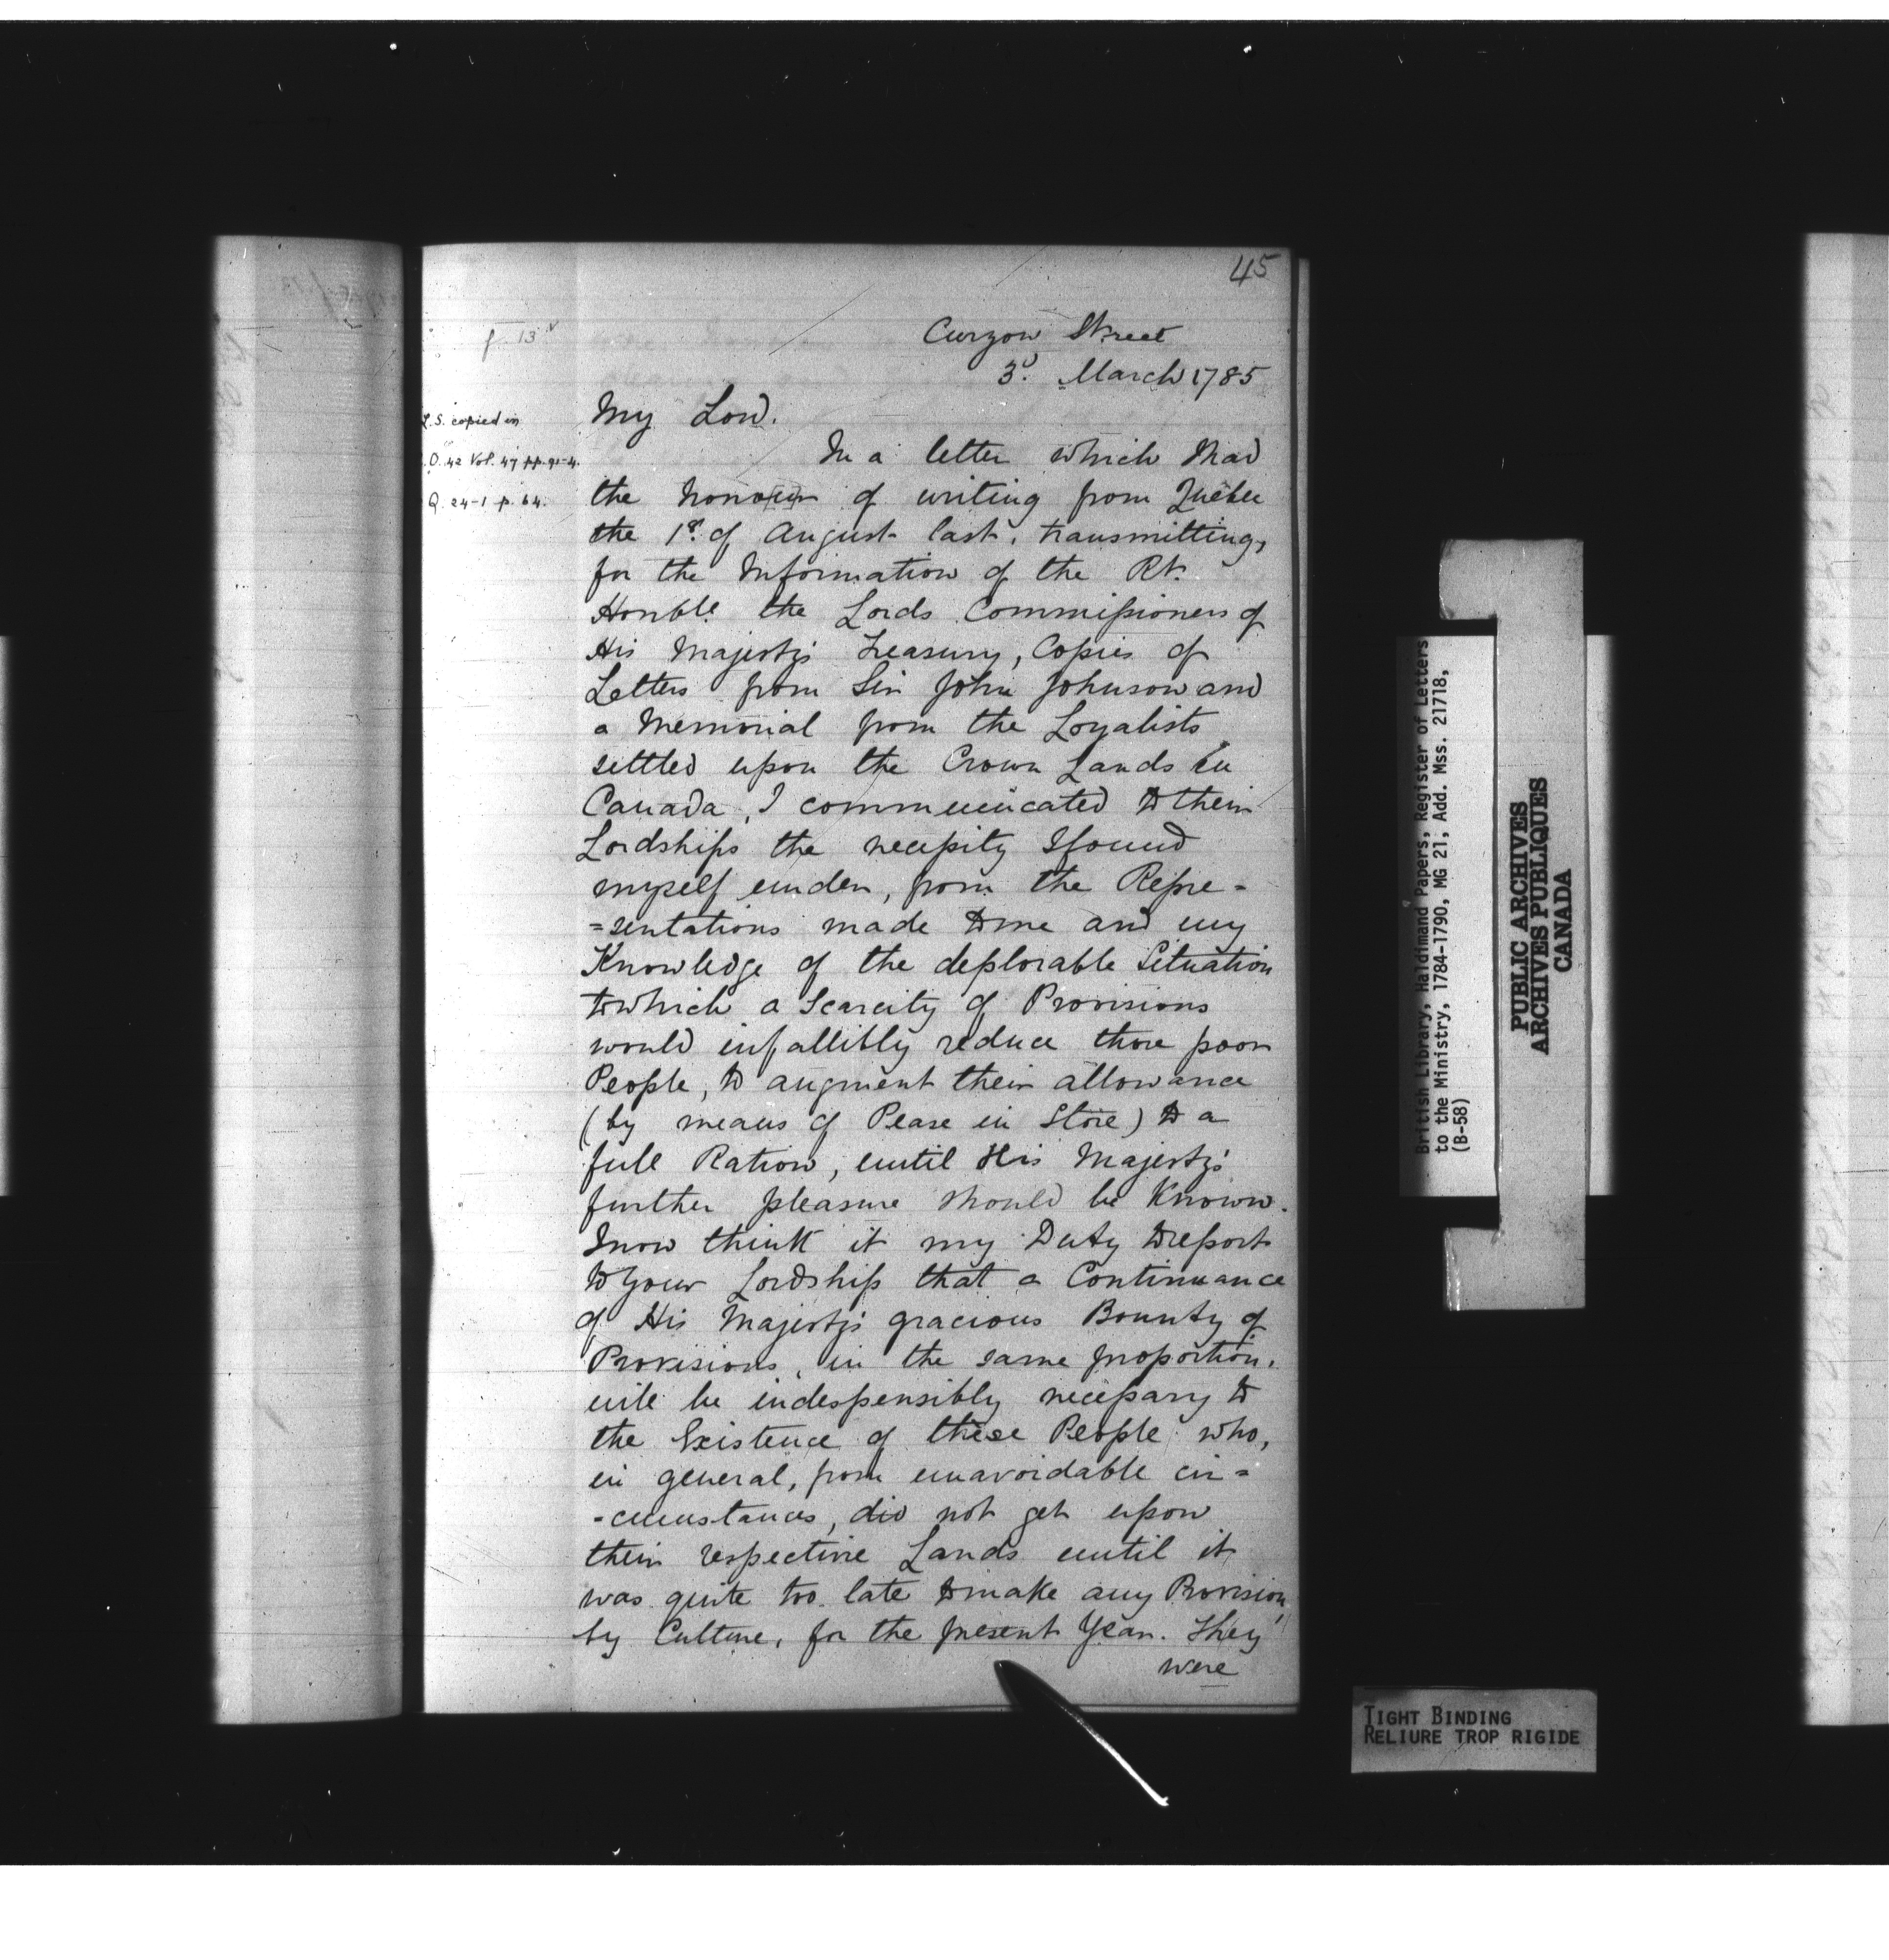 45
f. 13 v
Curzon Street
3d. March 1785
L.S. copied in
.O. 42 Vol. 47 pp. 91-4.
Q. 24-1 p. 64.
My Lord.
In a letter which I had
the honour of writing from Quebec
the 1st. of August last, transmitting,
for the Information of the Rt.
Honble. the Lords Commissioners of
His Majesty's Treasury, Copies of
Letters from Sir John Johnson and
a Memorial from the Loyalists
settled upon the Crown Lands in
Canada, I communicated to their
Lordships the necessity I found
myself under, from the Repre=
=sentations made to me and my
Knowledge of the deplorable Situation
to which a Scarcity of Provisions
would infallibly reduce those poor
People, to augment their allowance
(by means of Pease in Store) to a
full Ration, until His Majesty's
further pleasure should be Known.
I now think it my Duty to report
to Your Lordship that a Continuance
of His Majesty's gracious Bounty of
Provisions, in the same proportion,
will be indespensibly necessary to
the Existence of these People who,
in general, from unavoidable cir=
-cumstances, did not get upon
their respective Lands until it
was quite too late to make any Provision,
by Culture, for the present Year. They
were
British Library, Haldimand Papers, Register of Letters
to the Ministry, 1784-1790, MG 21, Add. Mss. 21718,
(B-58)
PUBLIC ARCHIVES
ARCHIVES PUBLIQUES
CANADA
TIGHT BINDING
RELIURE TROP RIGIDE